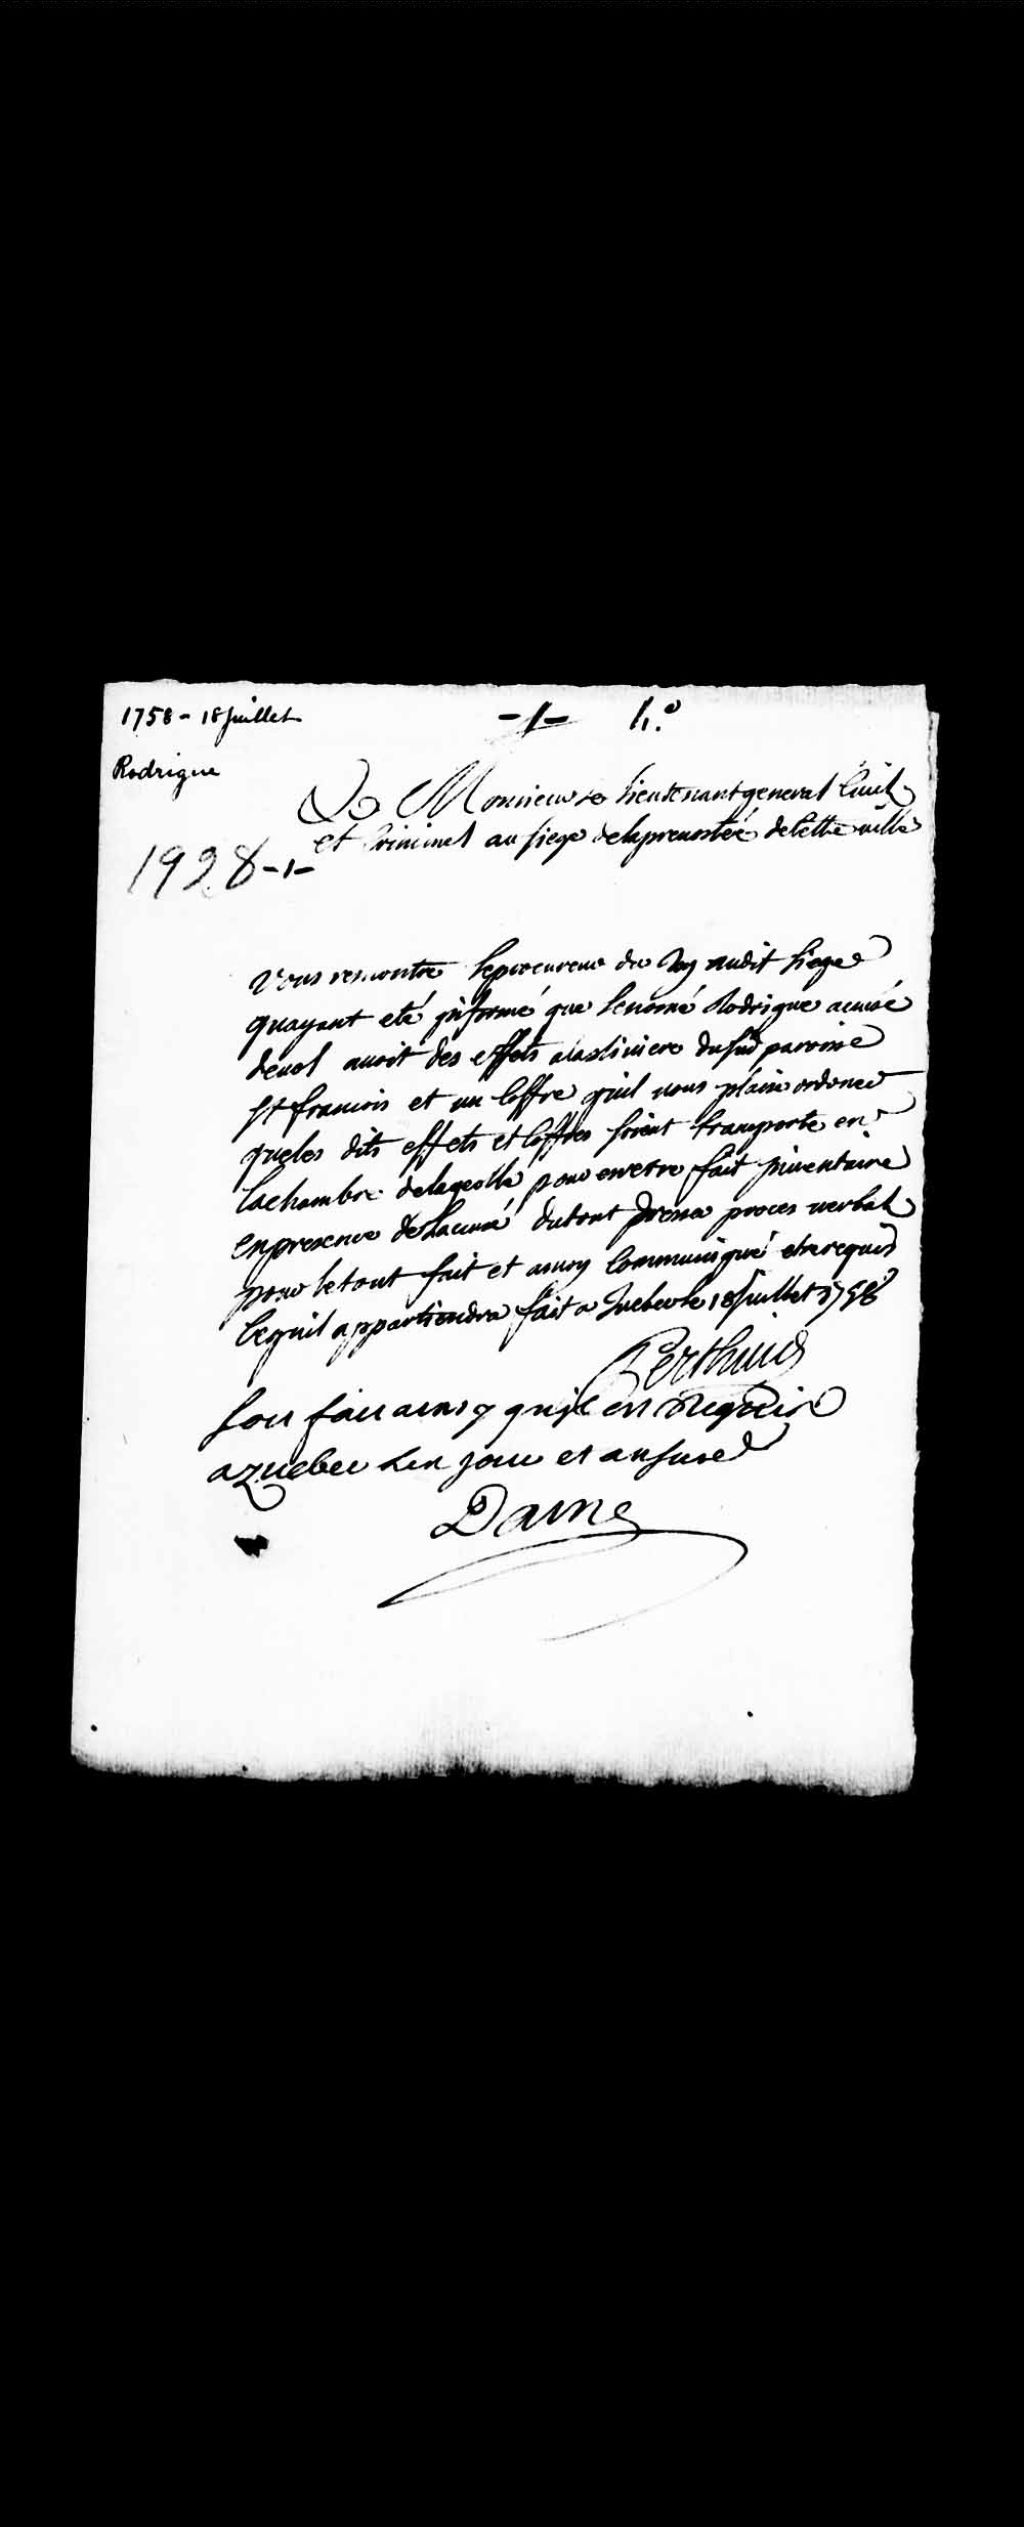 1758 - 18 Juillet
-1- 4.°
Rodrigue
A Monsieur le lieutenant general Civil
et Criminel au siege delaprevosteé decette ville
1928-1-
Vous remontre leprocureur du Roy audit siege
quayant eté informé que lenomé Rodrigue accusé
devol avoit des effets alariviere dusud paroisse
st francois et un coffre quil vous plaise ordoner
queles dits effets et coffres soient transporte en
lachambre delageolle pour enetre fait inventaire
enpresence deLacusé dutout dressé proces verbal
pour letout fait et amoy Communiqué etre requis
cequil appartiendra fait a Quebec le 18 Juillet 1758
Perthuis
soit fait ainsy quil est Requis
a quebec Les jour et an susd
Daine